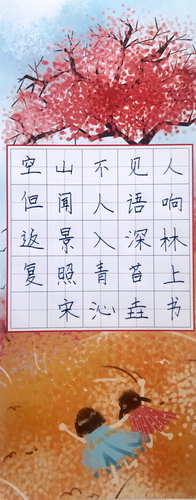 空山不见人
但闻人语响
返景入深林
复照青苔上
宋沁垚书